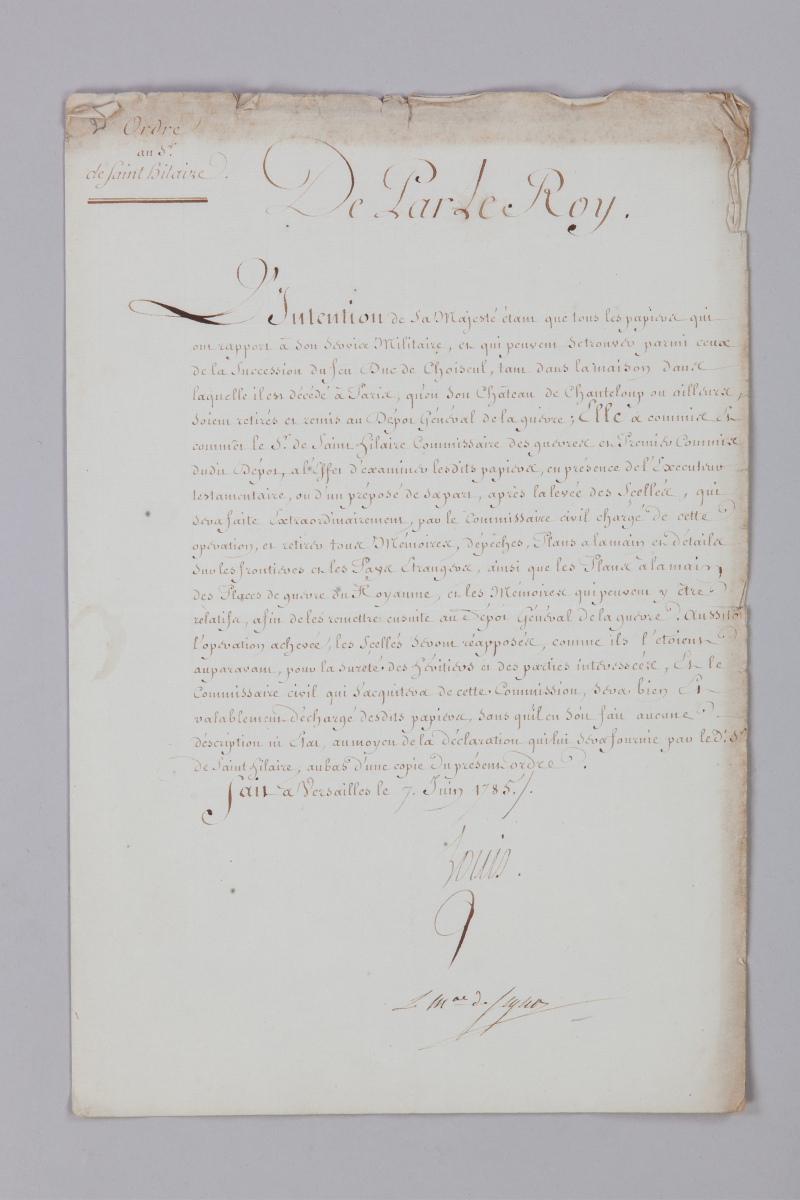 Ordre
au S.r
de Saint hilaire.
De Par Le Roy.
L'Intention de Sa Majesté étant que tous les papiers qui
ont rapport à Son Service Militaire, et qui peuvent Se trouver parmi ceux
de la Succession du feu Duc de Choiseul, tant dans la maison dans
laquelle il est décédé à Paris, qu'en Son Château de Chanteloup ou ailleurs,
Soient retirés et remis au Dépot Général de la guerre; Elle a commis et
commet le S.r de Saint hilaire Commissaire des guerres et Premier Commis
dudit Dépot, à l'Effet d'examiner lesdits papiers, en présence de l'Executeur
testamentaire, ou d'un préposé de sa part, après la levée des Scellés, qui
Sera faite Extraordinairement, par le Commissaire civil chargé de cette
opération, et retirer tous Mémoires, dépêches, Plans à la main et détails
Sur les frontières et les Pays Etrangers, ainsi que les Plans à la main,
des Places de guerre du Royaume, et les Mémoires qui peuvent y être
rélatifs, afin de les remettre ensuite au Dépot Général de la guerre. Aussitôt
l'opération achevée, les Scellés Seront réapposés, comme ils l'étoient
auparavant, pour la sureté des héritiers et des parties intéressées, Et le
Commissaire civil qui S'acquitera de cette Commission, Sera bien Et
valablement déchargé desdits papiers, Sans qu'il en Soit fait aucune
déscription ni Etat, au moyen de la déclaration qui lui Sera fournie par le D.t S.r
de Saint hilaire, au bas d'une copie du présent ordre.
fait à Versailles le 7. Juin 1785./.
Louis.
Le M.al de Segur